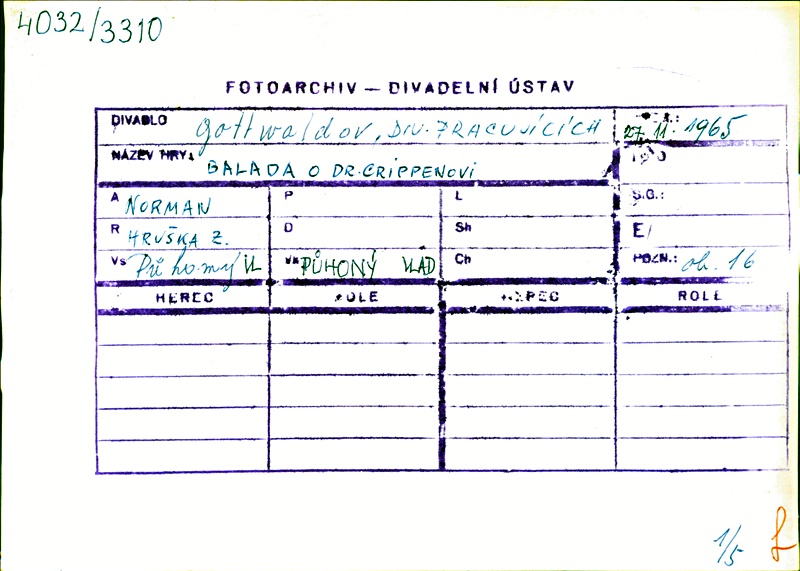 4032/3310
FOTOARCHIV — DIVADELNÍ ÚSTAV
DIVADLO Gottwaldov, DIV. PRACUJÍCÍCH 27. 11. 1965
NÁZEV HRY: BALADA O DR. CRIPPENOVI
A NORMAN P L S.G.:
R HRUŠKA Z. D Sh E/
Vs Půhoný Vl PŮHONÝ VLAD Ch POZN.: ob. 16
HEREC ROLE HEREC ROLE
1/5